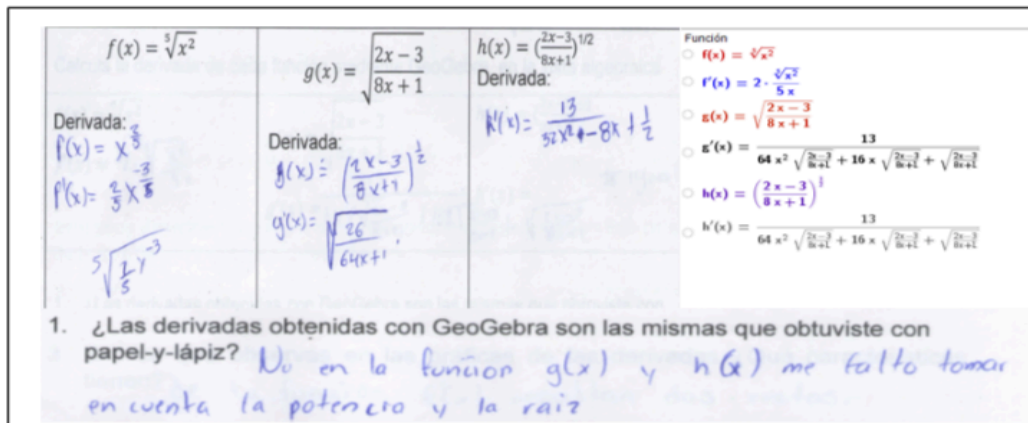 f(x) = ⁵√x²
Derivada:
f(x) = x^(2/5)
f'(x) = 2/5 x^(-3/5)
g(x) = √((2x − 3)/(8x + 1))
Derivada:
g(x) = ((2x−3)/(8x+1))^(1/2)
g'(x) = √(26/(64x+1
h(x) = ((2x−3)/(8x+1))^1/2
Derivada:
h'(x) = 13/
Función
f(x) = ⁵√x²
f'(x) = 2 · ⁵√x²/(5 x)
g(x) = √((2 x − 3)/(8 x + 1))
g'(x) = 13/(64 x² √((2x−3)/(8x+1)) + 16 x √((2x−3)/(8x+1)) + √((2x−3)/(8x+1)))
h(x) = ((2 x − 3)/(8 x + 1))^(1/2)
h'(x) = 13/(64 x² √((2x−3)/(8x+1)) + 16 x √((2x−3)/(8x+1)) + √((2x−3)/(8x+1)))
1. ¿Las derivadas obtenidas con GeoGebra son las mismas que obtuviste con
papel-y-lápiz? No en la función g(x) y h(x) me falto tomar
en cuenta la potencia y la raiz